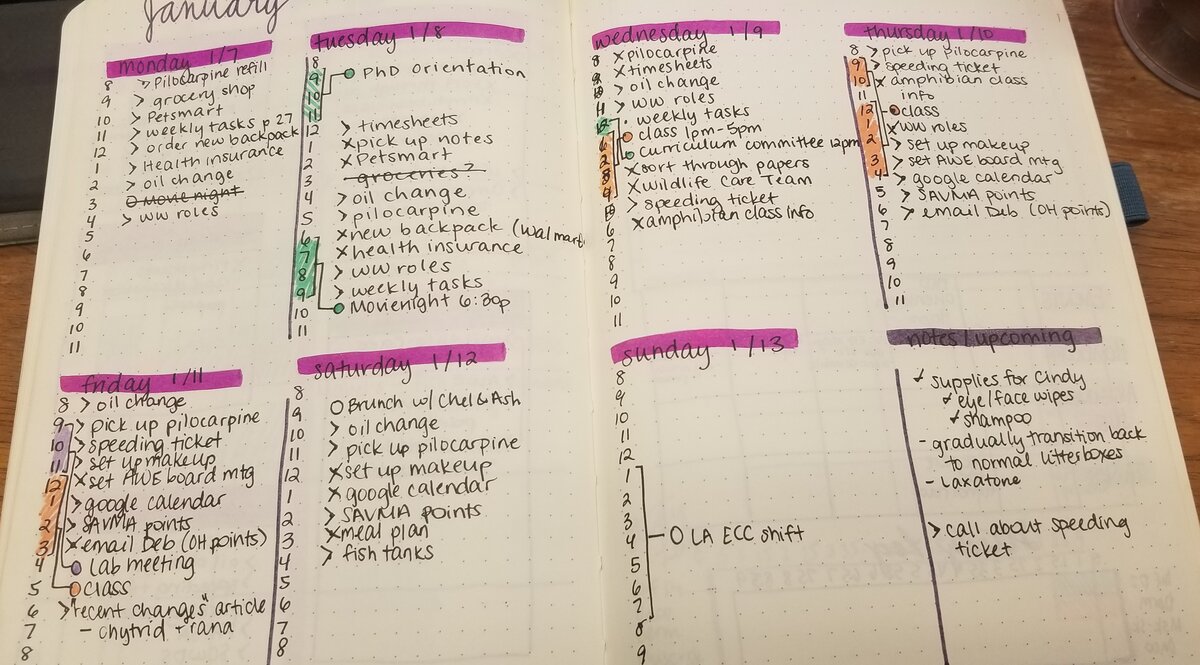 January
monday 1/7
8
9
10
11
12
1
2
3
4
5
6
7
8
9
10
11
> Pilocarpine refill
> grocery shop
> Petsmart
> weekly tasks p 27
> order new backpack
> Health insurance
> oil change
O Movie night
> WW roles
tuesday 1/8
8
9
10
11
12
1
2
3
4
5
6
7
8
9
10
11
PhD orientation
> timesheets
x pick up notes
x Petsmart
groceries?
> oil change
> pilocarpine
x new backpack (walmart)
x health insurance
> WW roles
> weekly tasks
Movienight 6:30p
wednesday 1/9
8
9
10
11
12
1
2
3
4
5
6
7
8
9
10
11
x pilocarpine
x timesheets
> oil change
> WW roles
· weekly tasks
class 1pm-5pm
curriculum committee 12pm
x sort through papers
x Wildlife Care Team
> speeding ticket
x amphibian class info
thursday 1/10
8
9
10
11
12
1
2
3
4
5
6
7
8
9
10
11
> pick up pilocarpine
> speeding ticket
x amphibian class
info
class
x WW roles
> set up makeup
> set AWE board mtg
> google calendar
> SAVMA points
> email Deb (OH points)
friday 1/11
8
9
10
11
12
1
2
3
4
5
6
7
8
> oil change
> pick up pilocarpine
> speeding ticket
> set up makeup
x set AWE board mtg
> google calendar
> SAVMA points
x email Deb (OH points)
Lab meeting
class
> "recent changes" article
- chytrid + rana
saturday 1/12
8
9
10
11
12
1
2
3
4
5
6
7
8
O Brunch w/ Chel & Ash
> oil change
> pick up pilocarpine
x set up makeup
x google calendar
> SAVMA points
x meal plan
> fish tanks
sunday 1/13
8
9
10
11
12
1
2
3
4
5
6
7
8
9
O LA ECC shift
notes/upcoming
supplies for Cindy
eye/face wipes
shampoo
- gradually transition back
to normal litterboxes
- laxatone
> call about speeding
ticket